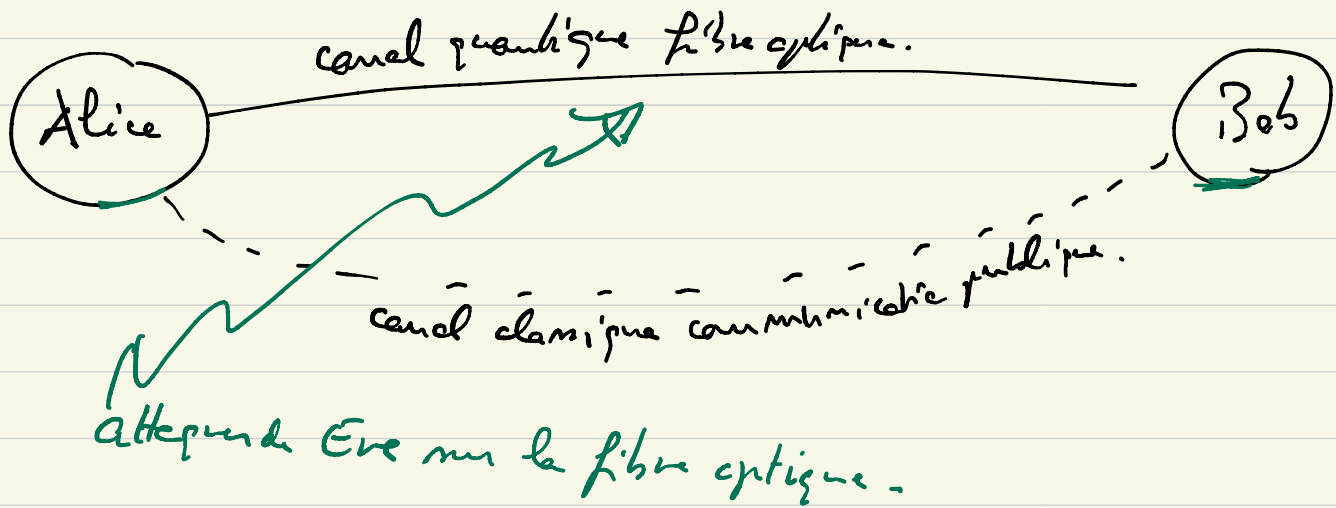 canal quantique fibre optique.
Alice
Bob
canal classique communicatio publique.
attaque de Eve sur la fibre optique.